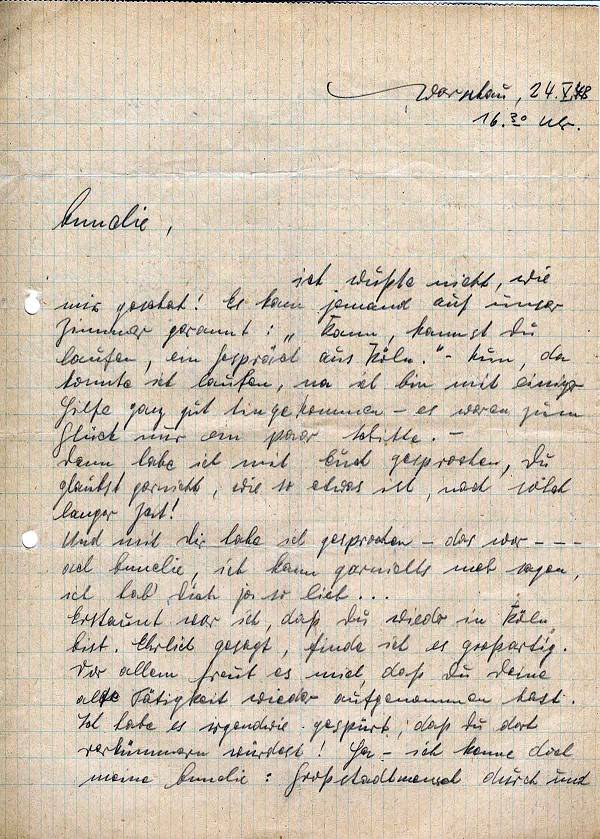 Warschau, 24.V.48
16.30 Uhr.
Annelie,
ich wußte nicht, wie
mir geschah! Es kam jemand auf unser
Zimmer gerannt: „ kannst Du
laufen, ein Gespräch aus Köln." - Nun, da
konnte ich laufen, na ich bin mit einiger
Hilfe ganz gut hingekommen - es waren zum
Glück nur ein paar Schritte. -
Dann habe ich mit Euch gesprochen, Du
glaubst garnicht, wie so etwas ist, nach solch
langer Zeit!
Und mit Dir habe ich gesprochen - das war - - -
ach Annelie, ich kann garnichts mehr sagen,
ich hab Dich ja so lieb...
Erstaunt war ich, daß Du wieder in Köln
bist. Ehrlich gesagt, finde ich es großartig.
Vor allem freut es mich, daß Du Deine
alte Tätigkeit wieder aufgenommen hast.
Ich habe es irgendwie gespürt, daß Du dort
verkümmern würdest! Ja - ich kenne doch
meine Annelie: Großstadtmensch durch und